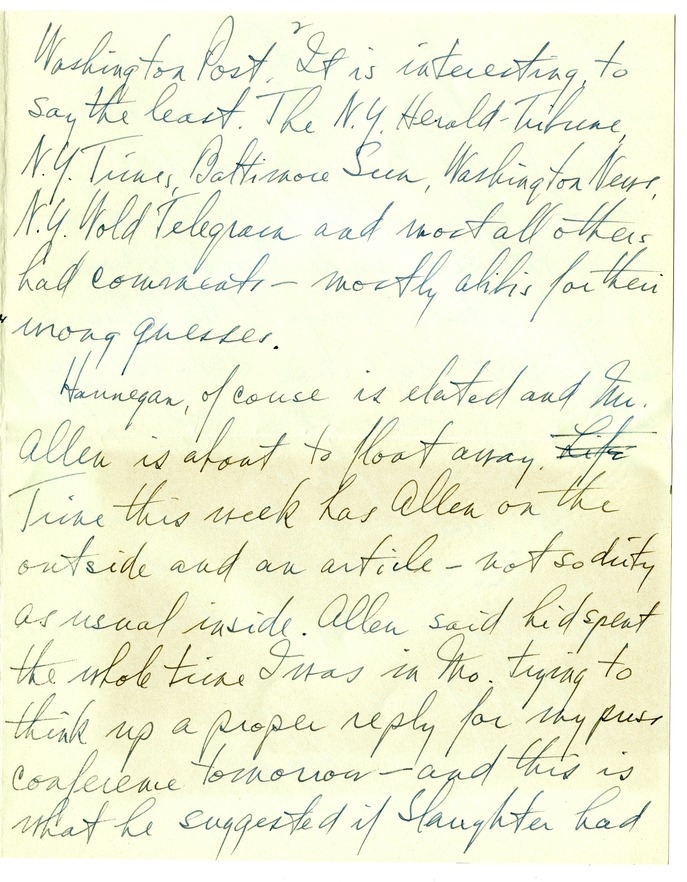 2
Washington Post. It is interesting, to
say the least. The N.Y. Herald-Tribune,
N.Y. Times, Baltimore Sun, Washington News,
N.Y. Wold Telegram and most all others
had comments - mostly alibis for their
wrong guesses.
Hannegan, of couse is elated and Mr.
Allen is about to float away. Life
Time this week has Allen on the
outside and an article - not so dirty
as usual inside. Allen said hid spent
the whole time I was in Mo. trying to
think up a proper reply for my press
conference tomorrow - and this is
what he suggested if Slaughter had